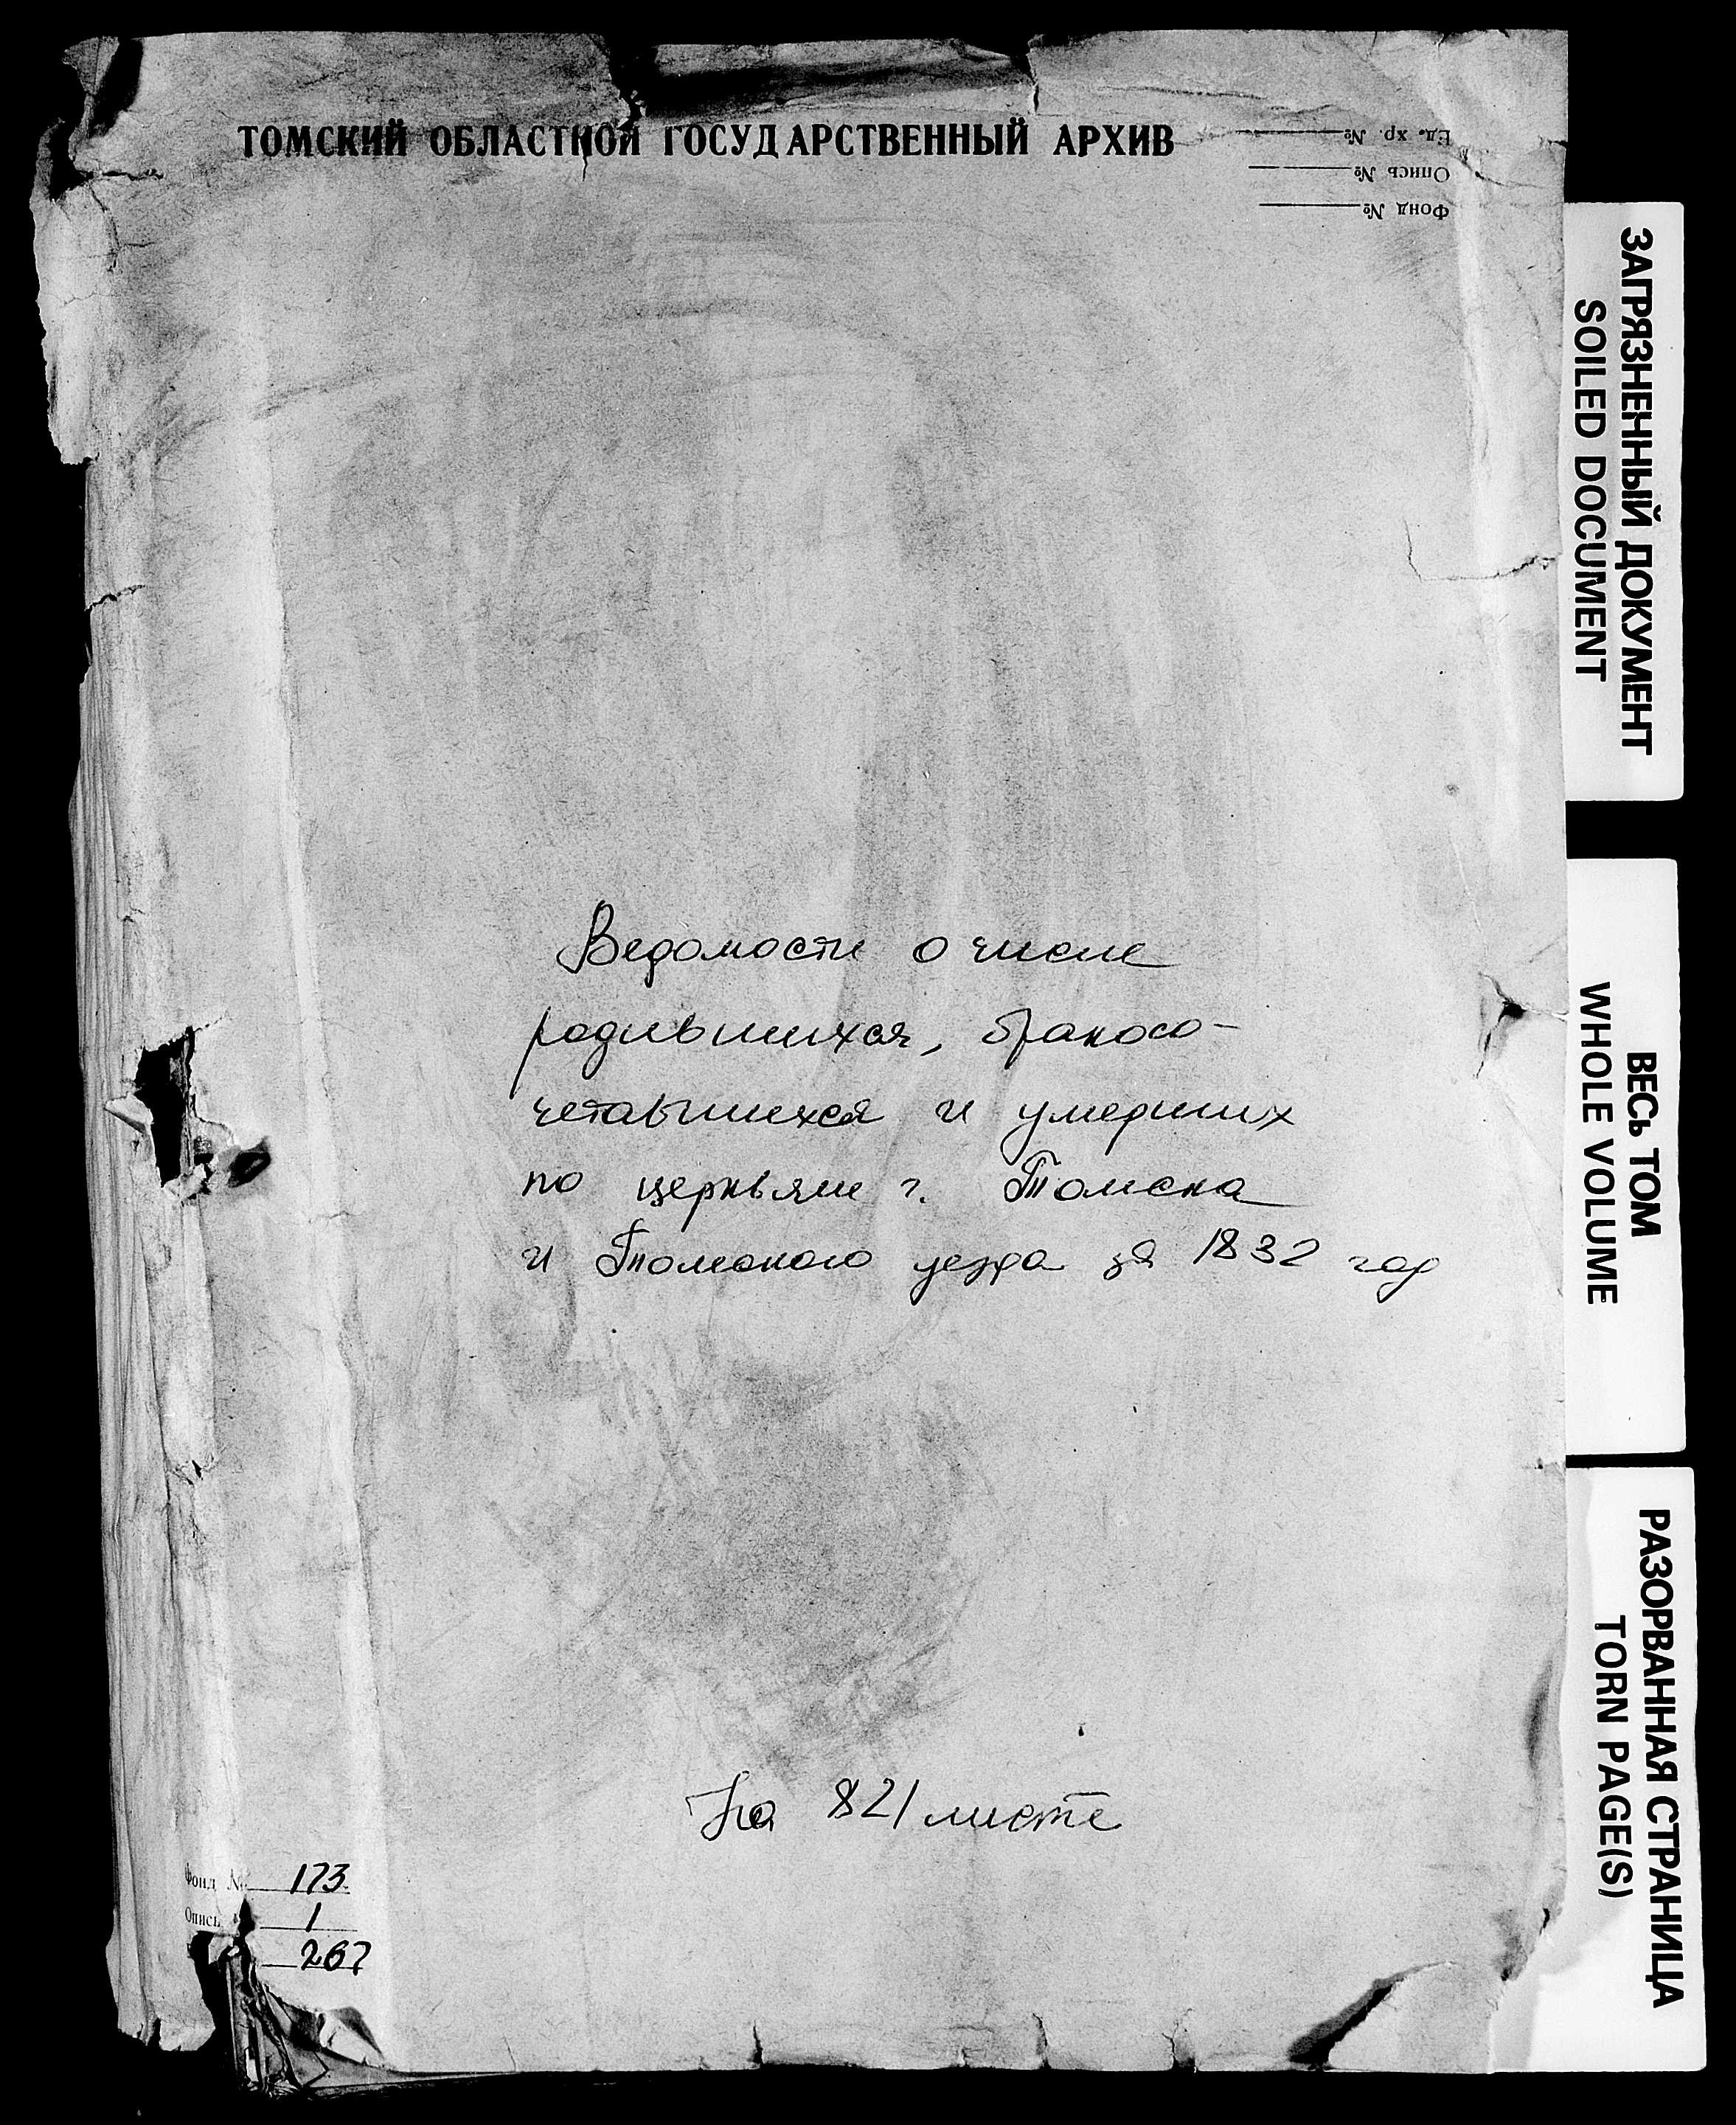 ТОМСКИЙ ОБЛАСТНОЙ ГОСУДАРСТВЕННЫЙ АРХИВ
Ед. хр. №
Опись №
Фонд №
Ведомости о числе
родившихся, бракосо-
четавшихся и умерших
по церквям г. Томска
и Томского уезда за 1832 год
На 821 листе
Фонд № 173
Опись 1
267
ЗАГРЯЗНЕННЫЙ ДОКУМЕНТ
SOILED DOCUMENT
ВЕСЬ ТОМ
WHOLE VOLUME
РАЗОРВАННАЯ СТРАНИЦА
TORN PAGE(S)